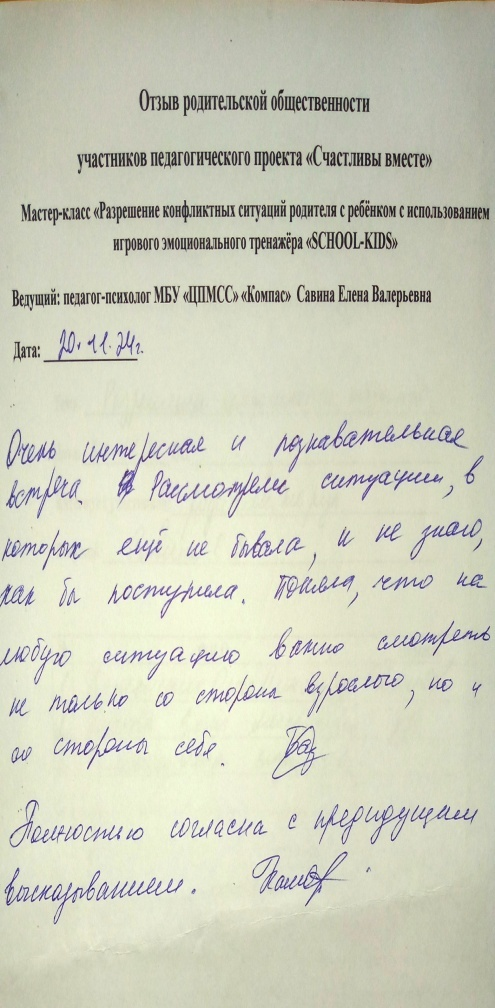 Отзыв родительской общественности
участников педагогического проекта «Счастливы вместе»
Мастер-класс «Разрешение конфликтных ситуаций родителя с ребёнком с использованием
игрового эмоционального тренажёра «SCHOOL-KIDS»
Ведущий: педагог-психолог МБУ «ЦПМСС» «Компас» Савина Елена Валерьевна
Дата: 20.11.24г.
Очень интересная и познавательная
встреча. Рассмотрели ситуации, в
которых ещё не бывала, и не знаю,
как бы поступила. Поняла, что на
любую ситуацию важно смотреть
не только со стороны взрослого, но и
со стороны себя.
Полностью согласна с предидущим
высказыванием.